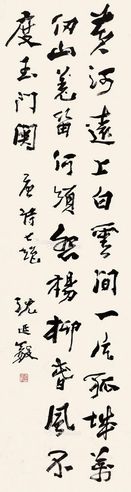 黄河遠上白雲間一片孤城萬
仞山羌笛何須怨楊柳春風不
度玉門關 唐詩七絕 沈延毅